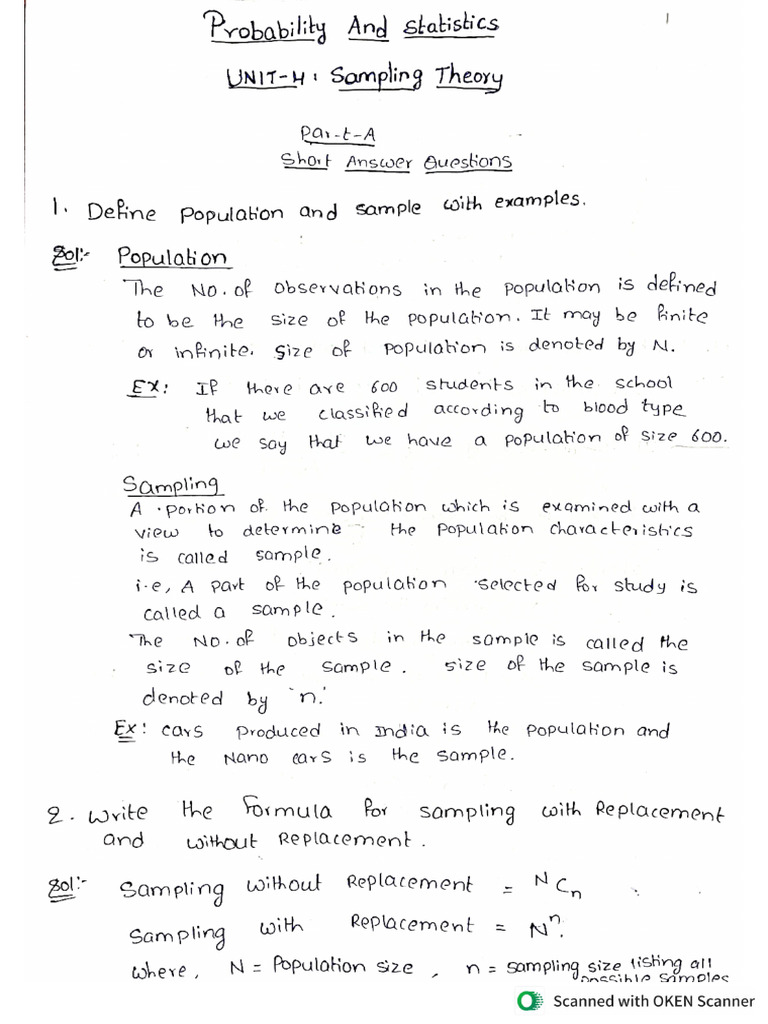 1
Probability And Statistics
UNIT-4: Sampling Theory
Part-A
Short Answer Questions
1. Define Population and Sample with examples.
Sol:- Population
The No. of observations in the population is defined
to be the size of the population. It may be finite
or infinite. Size of population is denoted by N.
Ex: If there are 600 students in the school
that we classified according to blood type
we say that we have a population of size 600.
Sampling
A portion of the population which is examined with a
view to determine the population characteristics
is called sample.
i.e, A part of the population selected for study is
called a sample.
The No. of objects in the sample is called the
size of the sample. size of the sample is
denoted by 'n.'
Ex: cars produced in India is the population and
the Nano cars is the sample.
2. Write the Formula for sampling with Replacement
and without Replacement.
Sol:- Sampling without Replacement = ᴺCₙ
Sampling with Replacement = Nⁿ.
where, N = Population size, n = sampling size listing all
possible samples
Scanned with OKEN Scanner